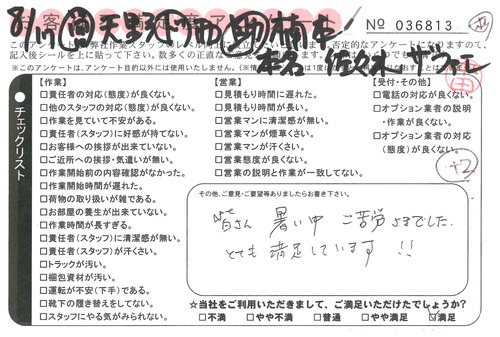 8/17 間 天野 下西 助 楠本
No 036813
※このアンケートは、アンケート目的以外には使用いたしません。
チェックリスト
【作業】
□責任者の対応(態度)が良くない。
□他のスタッフの対応(態度)が良くない。
□作業を見ていて不安がある。
□責任者(スタッフ)に好感が持てない。
□お客様への挨拶が出来ていない。
□ご近所への挨拶・気遣いが無い。
□作業開始前の内容確認がなかった。
□作業開始時間が遅れた。
□荷物の取り扱いが雑である。
□お部屋の養生が出来ていない。
□作業時間が長すぎる。
□責任者(スタッフ)に清潔感が無い。
□責任者(スタッフ)が汗くさい。
□トラックが汚い。
□梱包資材が汚い。
□運転が不安(下手)である。
□靴下の履き替えをしてない。
□スタッフにやる気がみられない。
【営業】
□見積もり時間に遅れた。
□見積もり時間が長い。
□営業マンに清潔感が無い。
□営業マンが煙草くさい。
□営業マンが汗くさい。
□営業態度が良くない。
□営業の説明と作業が一致してない。
【受付・その他】
□電話の対応が良くない。
□オプション業者の説明
・作業が良くない。
□オプション業者の対応
(態度)が良くない。
+2
その他、ご意見・ご要望等ありましたらお書き下さい。
皆さん 暑い中 ご苦労さまでした.
とても 満足しています !!
☆当社をご利用いただきまして、ご満足いただけたでしょうか?
□不満 □やや不満 □普通 □やや満足 ☑満足